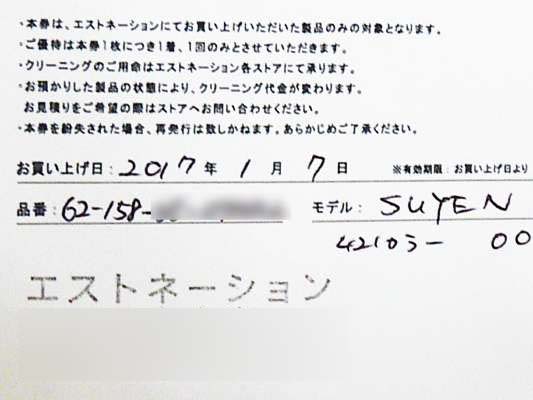 ・本券は、エストネーションにてお買い上げいただいた製品のみの対象となります。
・ご優待は本券1枚につき1着、1回のみとさせていただきます。
・クリーニングのご用命はエストネーション各ストアにて承ります。
・お預かりした製品の状態により、クリーニング代金が変わります。
お見積りをご希望の際はストアへお問い合わせください。
・本券を紛失された場合、再発行は致しかねます。あらかじめご了承ください。
お買い上げ日：2017年 1月 7日 ※有効期限：お買い上げ日より
品番：62-158- モデル：SUYEN
42103- 00
エストネーション